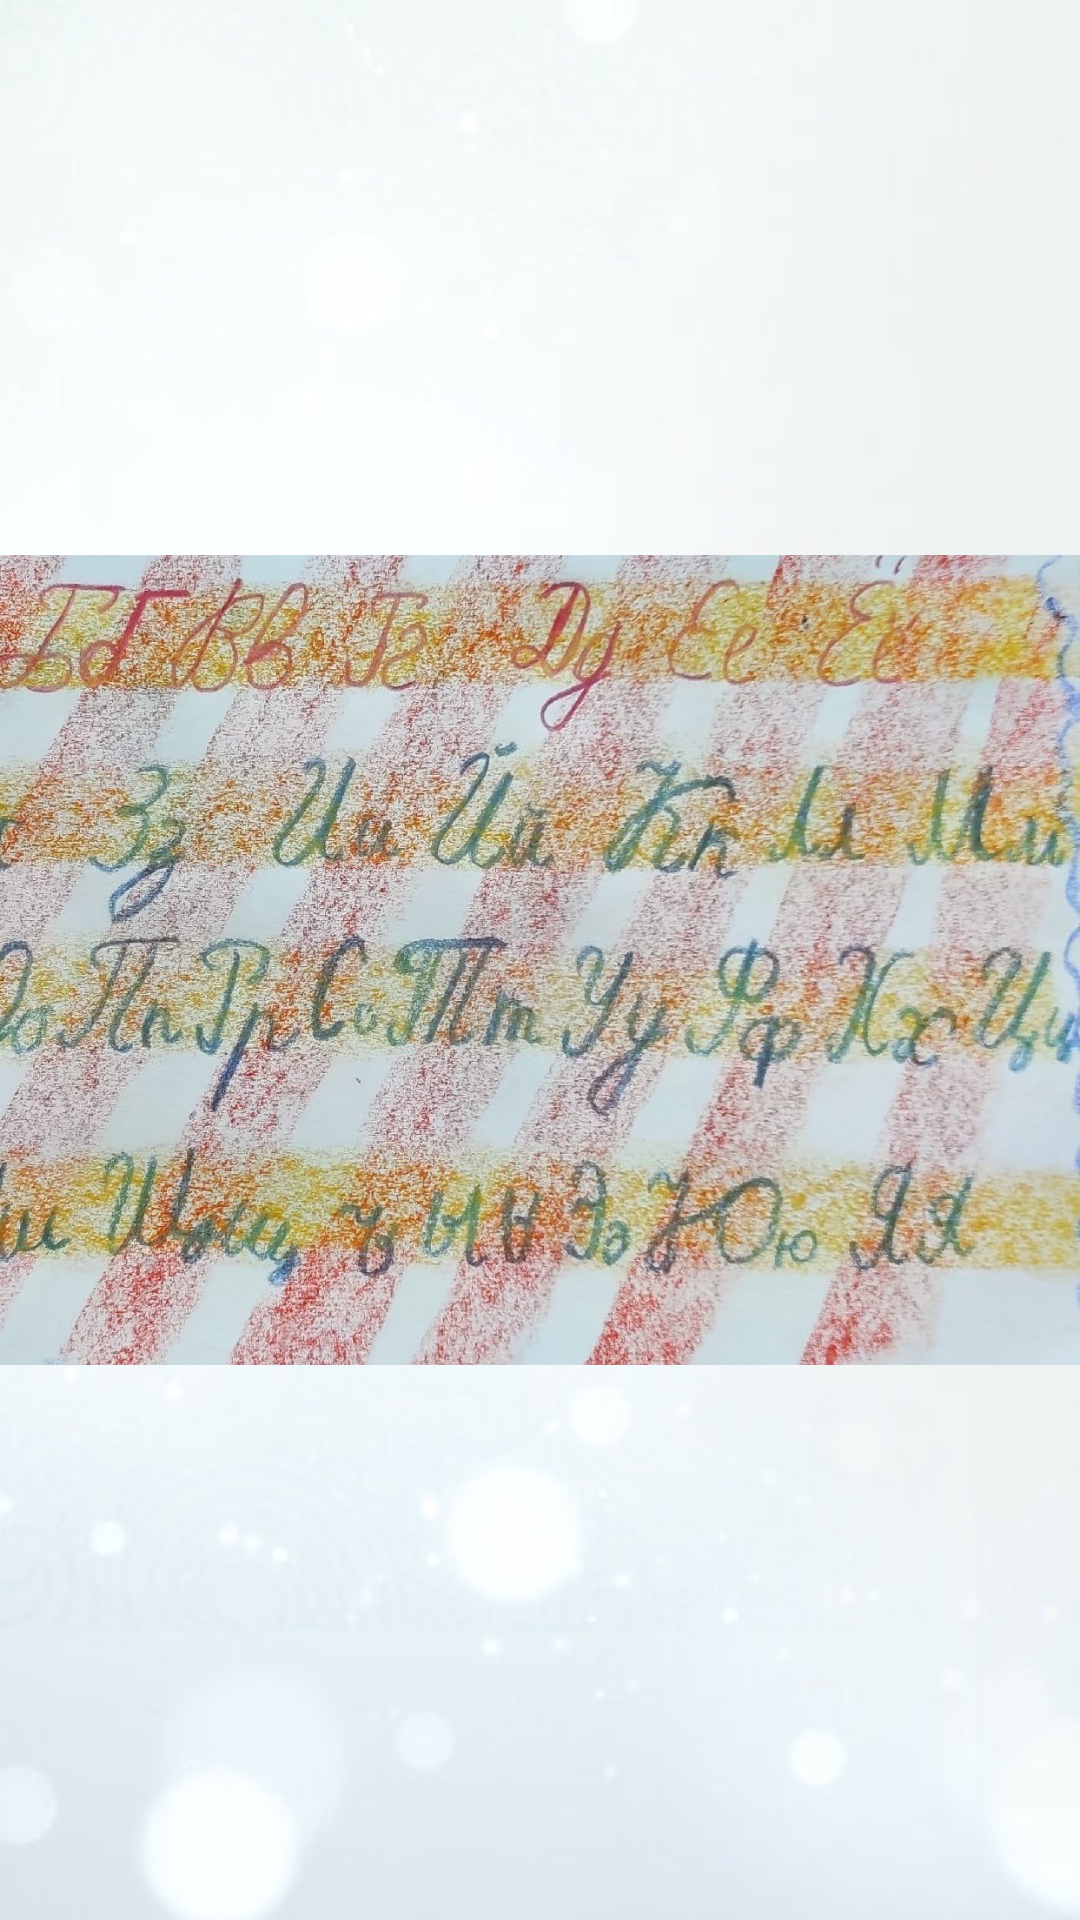 Бб Вв Гг Дд Ее Ёё
Зз Ии Йй Кк Лл Мм
Оо Пп Рр Сс Тт Уу Фф Хх Цц
ш Щщ ъ ы ь Ээ Юю Яя